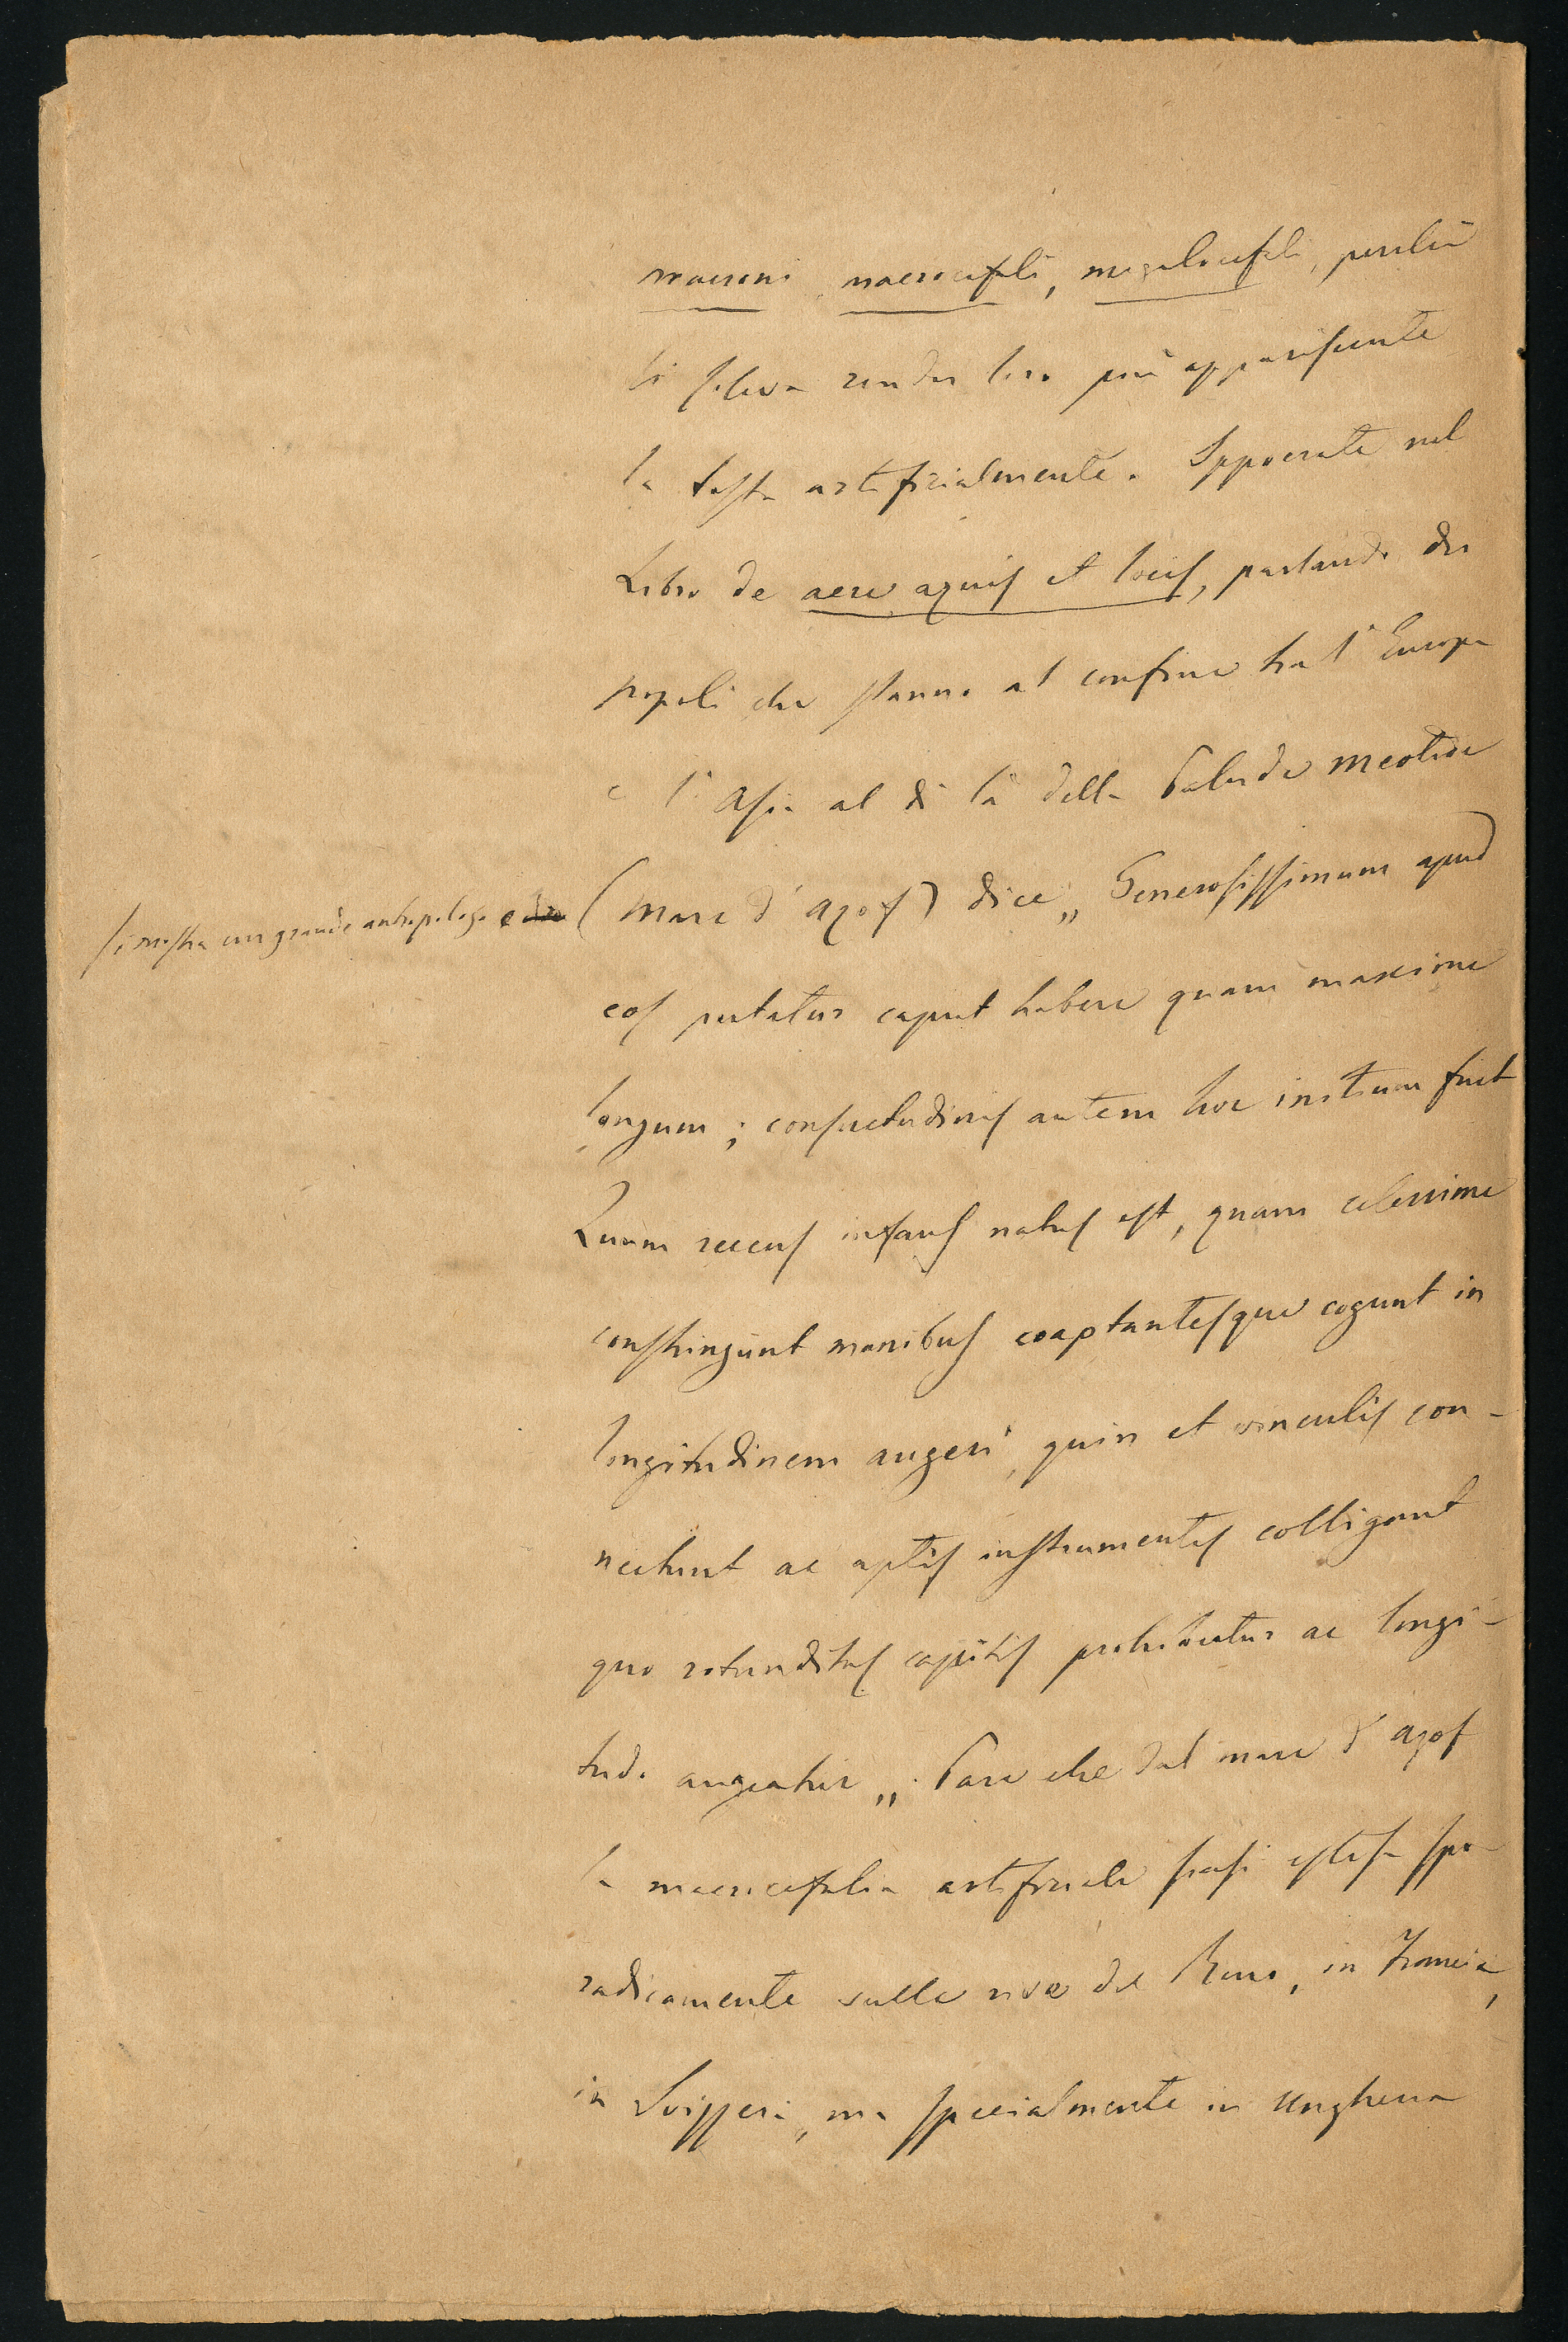 macroni macrocefali, megalocefali, perchè
si soleva render loro più appariscente
la testa artificialmente. Ippocrate nel
Libro de aere aquis et locis, parlando dei
popoli che stanno al confine tra l'Europa
e l'Asia al di là della Palude Meotide
si mostra un grande antropologo e
(Mare d'Azof) dice „ Generosissimum apud
eos putatur caput habere quam maxime
longum; consuetudinis autem hoc initium fuit
Quum recens infans natus est, quam celerrime
constringunt manibus coaptantesque cogunt in
longitudinem augeri, quin et vinculis con-
nectunt ac aptis instrumentis colligant
quo rotunditas capitis prohibeatur ac longi-
tudo augeatur „. Pare che dal mare d'Azof
la macrocefalia artificiale siasi estesa spo-
radicamente sulle rive del Reno, in Francia,
in Svizzera, ma specialmente in Ungheria